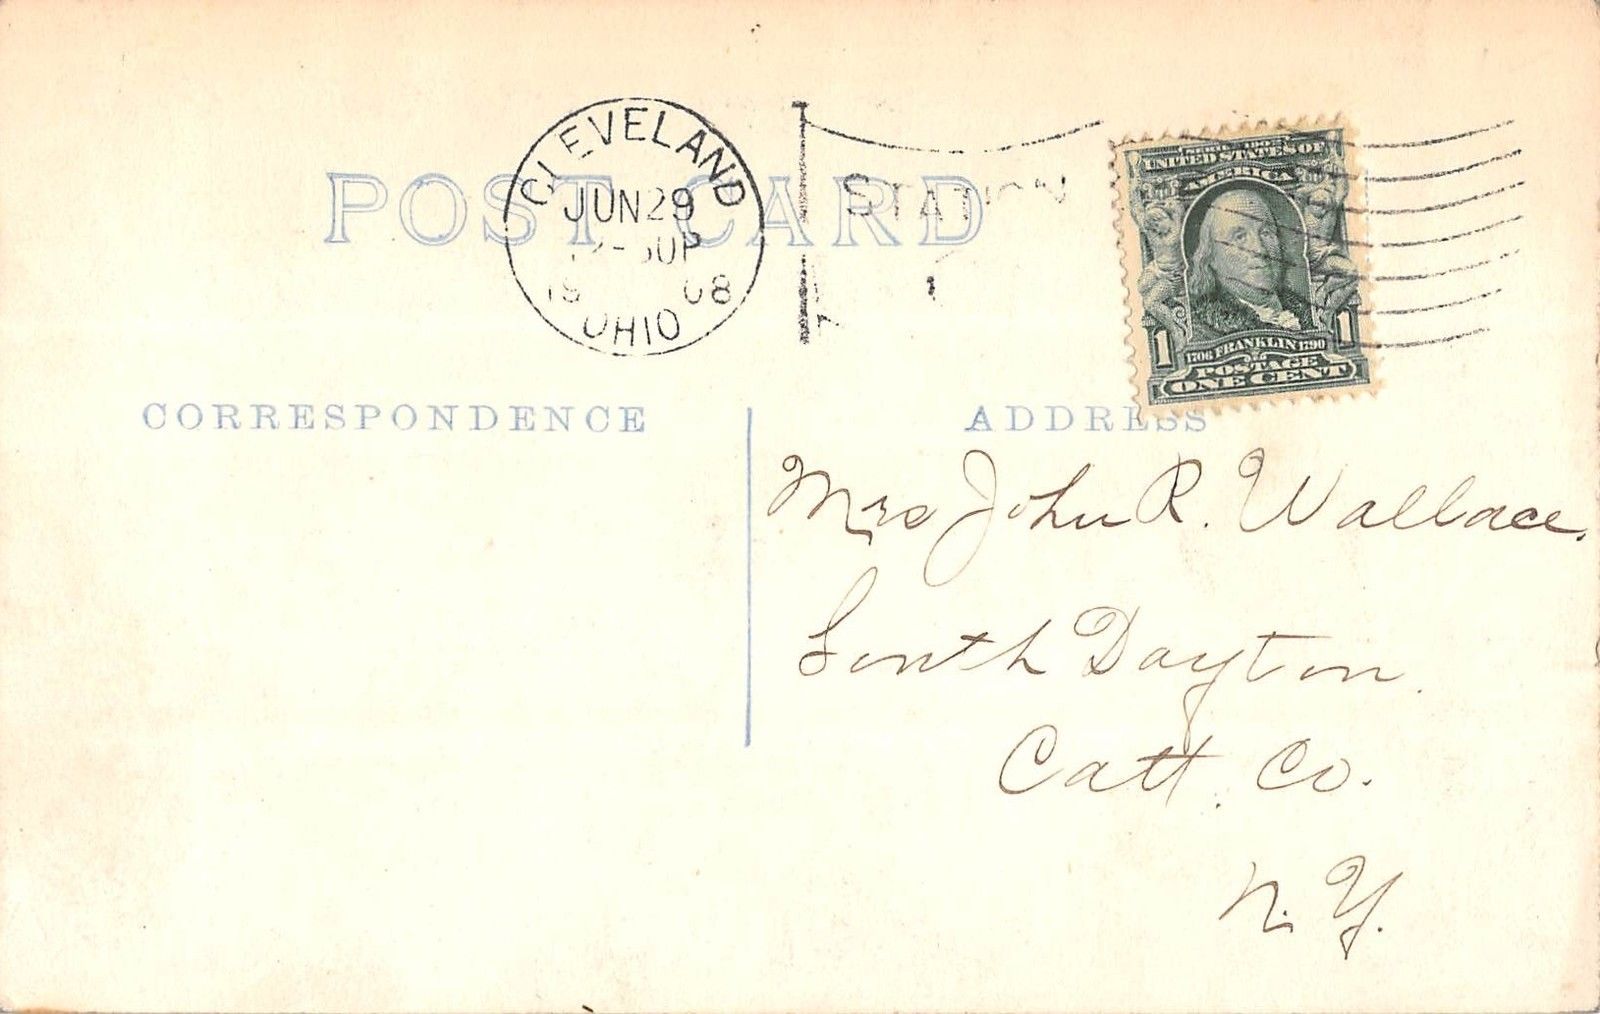 POST CARD
CLEVELAND
JUN 29
1908
OHIO
STATION
UNITED STATES OF
AMERICA
1 1
1706 FRANKLIN 1790
POSTAGE
ONE CENT
CORRESPONDENCE
ADDRESS
Mrs John R. Wallace.
South Dayton.
Catt. Co.
N. Y.